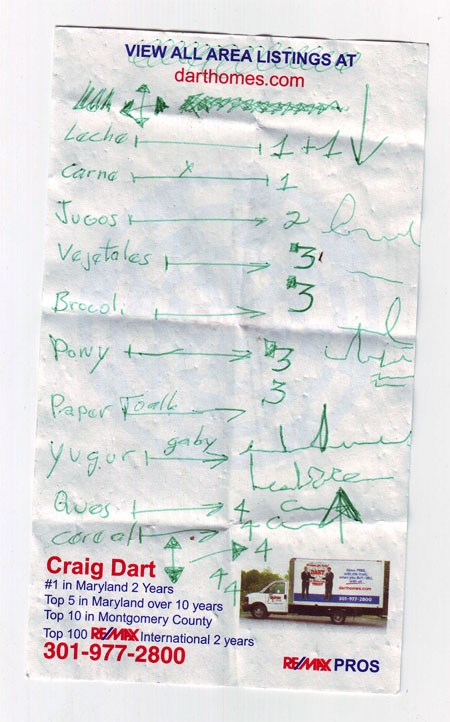 VIEW ALL AREA LISTINGS AT
darthomes.com
Leche 1+1
Carne x 1
Jugos 2
Vejetales 3
Brocoli 3
Pony 3
Paper Toalk 3
Yugur gaby
Qvos 4
cereal 4
4
4 4
Craig Dart
#1 in Maryland 2 Years
Top 5 in Maryland over 10 years
Top 10 in Montgomery County
Top 100 RE/MAX International 2 years
301-977-2800
DART
darthomes.com
301-977-2800
RE/MAX PROS